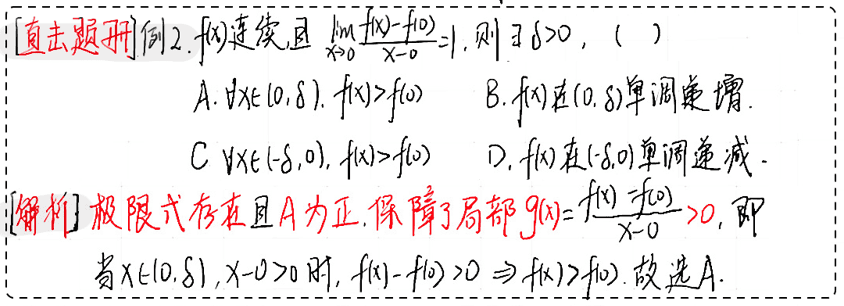 [直击题册]例2. f(x)连续,且 lim x→0 (f(x)-f(0))/(x-0)=1, 则∃δ>0, ( )
A. ∀x∈(0,δ), f(x)>f(0) B. f(x)在(0,δ)单调递增.
C ∀x∈(-δ,0), f(x)>f(0) D. f(x)在(-δ,0)单调递减.
[解析] 极限式存在且A为正.保障了局部g(x)=(f(x)-f(0))/(x-0)>0, 即
当x∈(0,δ), x-0>0时, f(x)-f(0)>0 ⇒ f(x)>f(0). 故选A.